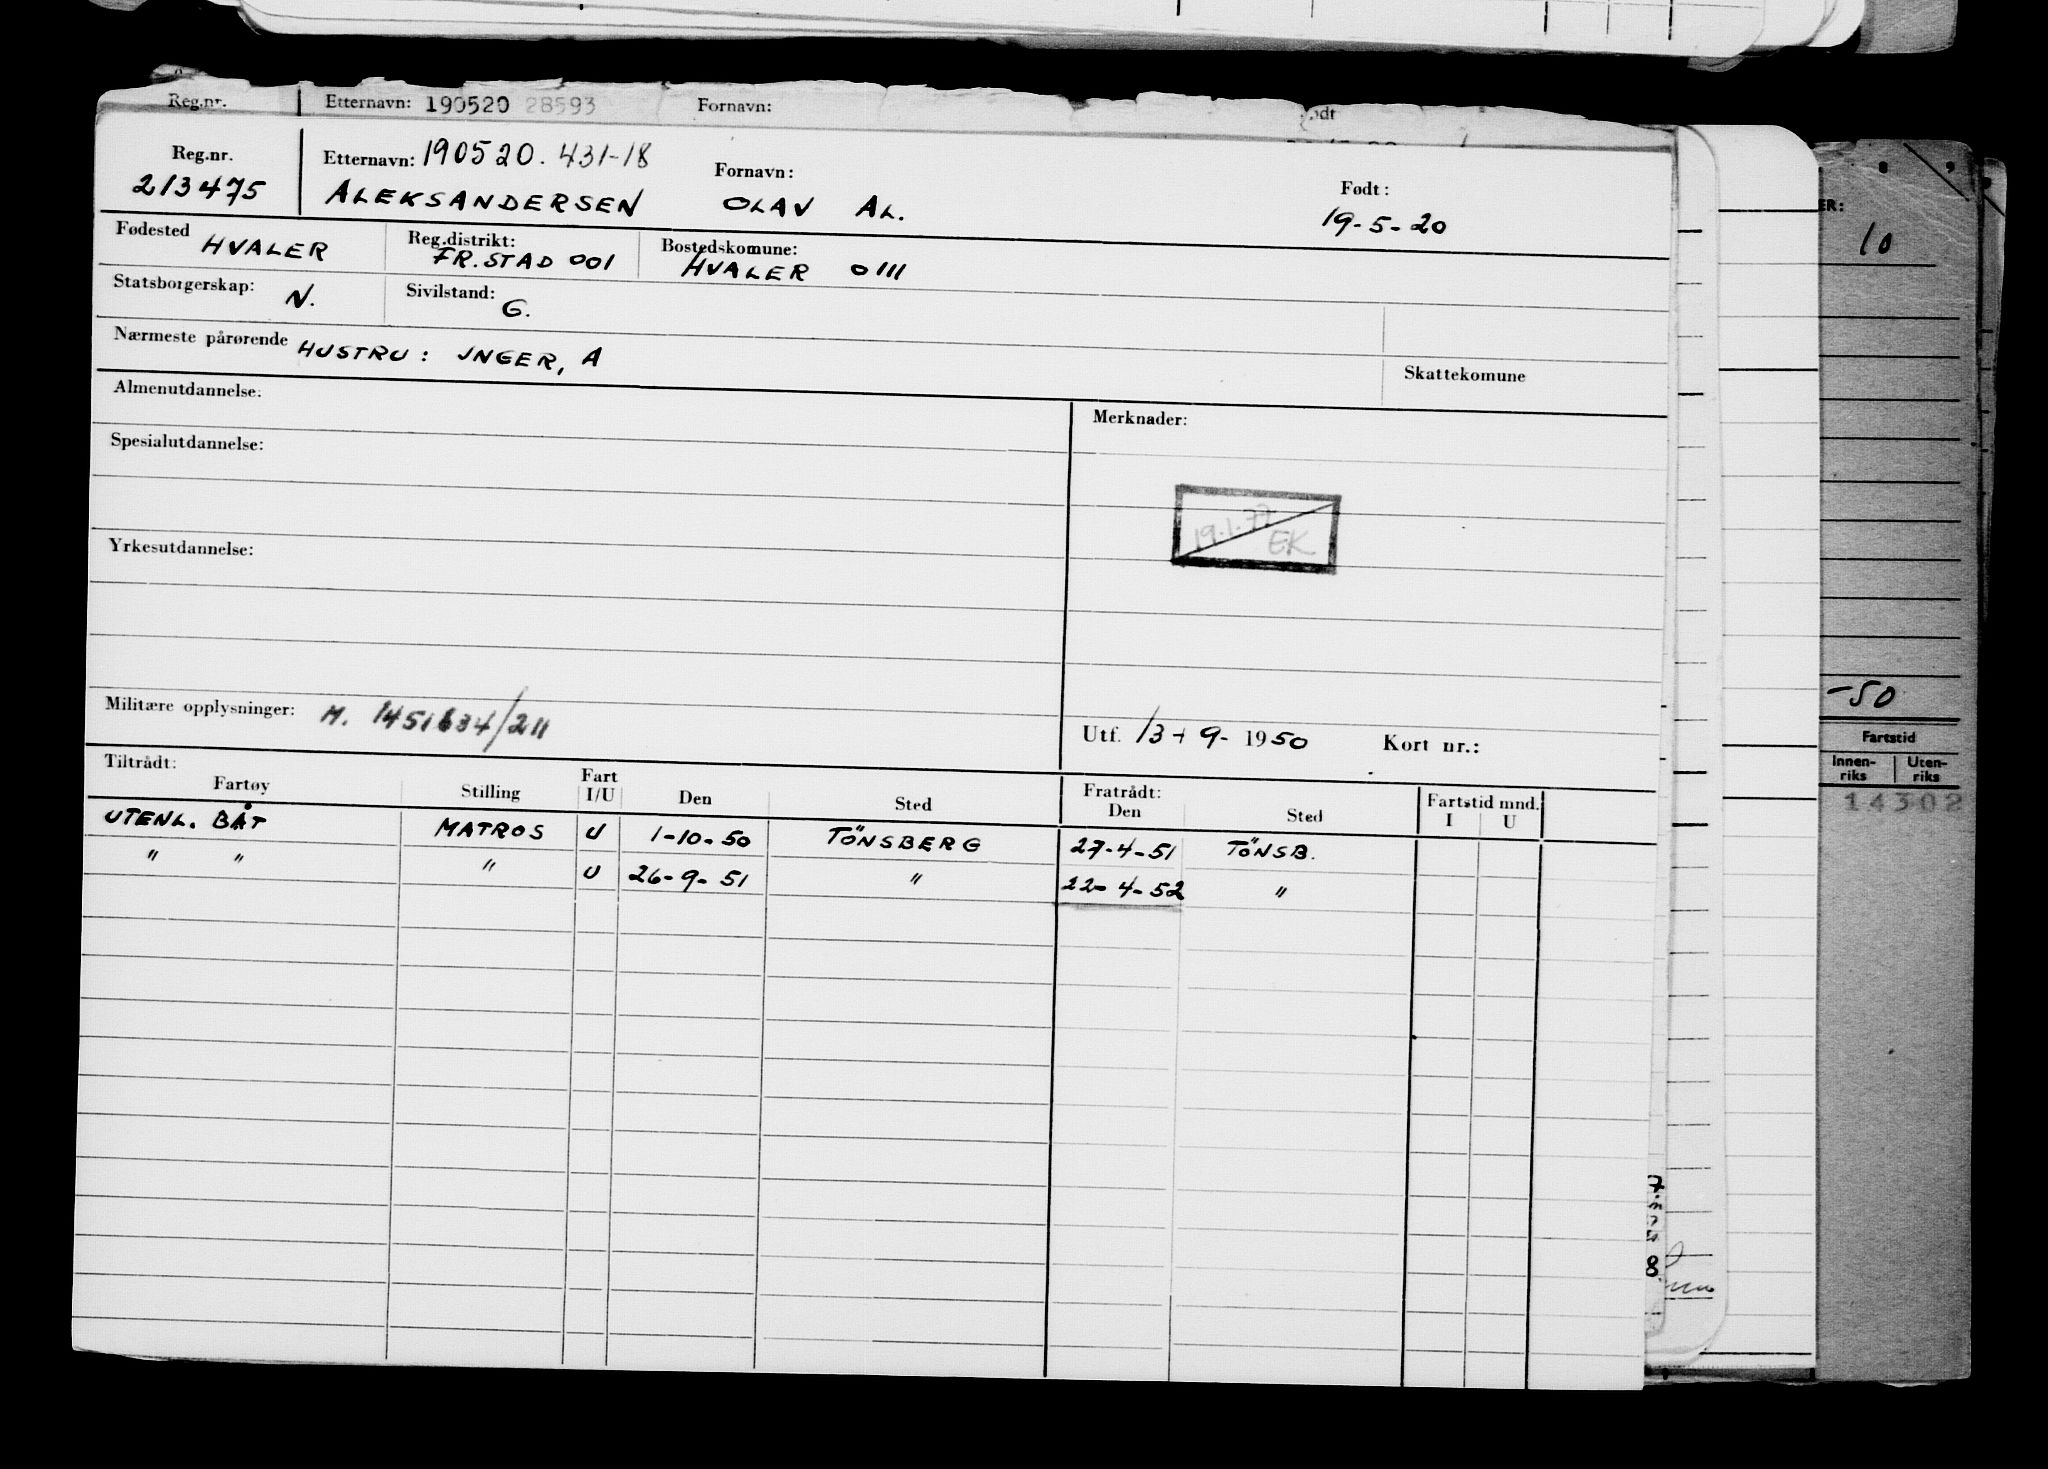 Reg.nr. Etternavn: 190520 28593 Fornavn:
Reg.nr. Etternavn: 190520. 431-18 Fornavn: Født:
213475 ALEKSANDERSEN OLAV AL. 19-5-20
Fødested HVALER Reg.distrikt: FR.STAD 001 Bostedskomune: HVALER 0111
Statsborgerskap: N. Sivilstand: G.
Nærmeste pårørende HUSTRU: INGER, A Skattekomune
Almenutdannelse: Merknader:
Spesialutdannelse:
19.1.77 EK
Yrkesutdannelse:
Militære opplysninger: M. 1451634/211
Utf. 13-9-1950 Kort nr.:
Tiltrådt: Fratrådt: Fartstid mnd.
Fartøy Stilling Fart I/U Den Sted Den Sted I U
UTENL. BÅT MATROS U 1-10-50 TÖNSBERG 27-4-51 TÖNSB.
" " " U 26-9-51 " 22-4-52 "
ER:
10
-50
Fartstid
Innen-riks Uten-riks
14302